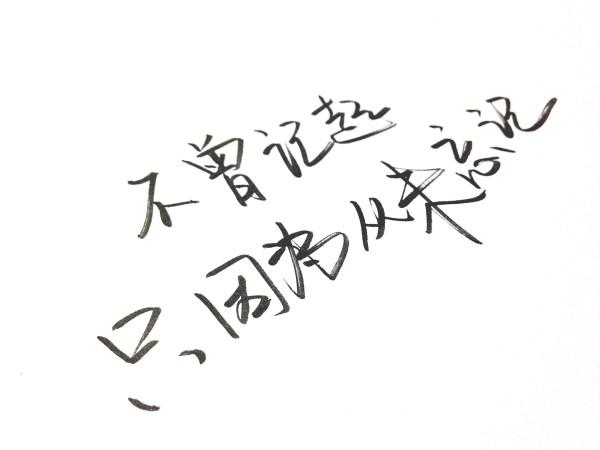 不曾记起
只因为从未忘记